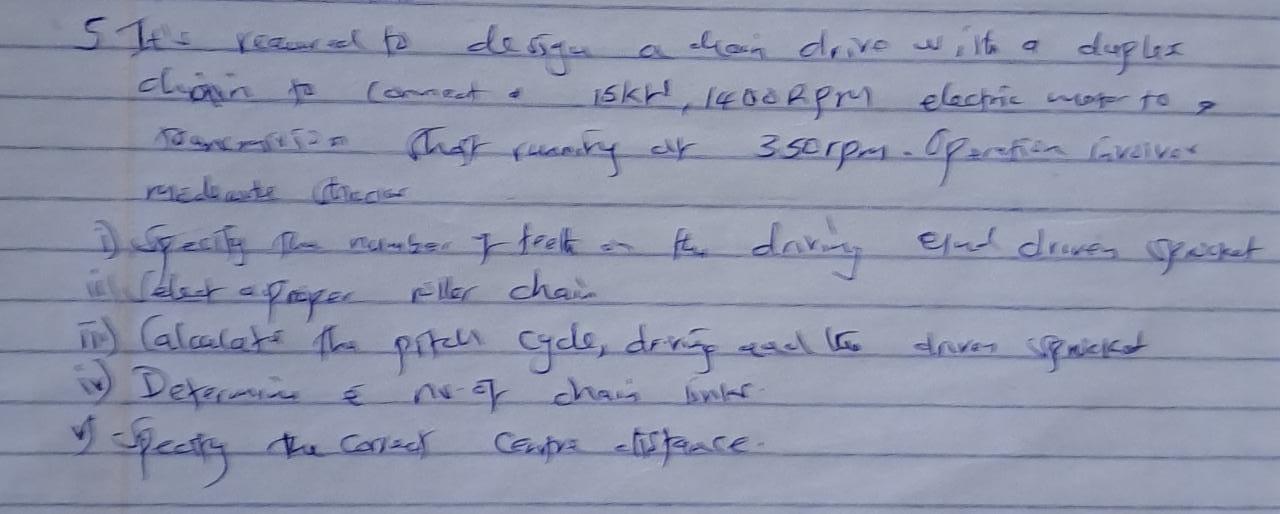 5 It's required to design a chain drive with a duplex
chain to connect a 15kW, 1400 RPM electric motor to a
transmission shaft running at 350rpm. Operation involves
moderate shocks
i) Specify the number of teeth on the driving and driven sprocket
ii) Select a proper roller chain
iii) Calculate the pitch cycle, driving and the driven sprocket
iv) Determine no. of chain links.
v) Specify the correct centre distance.